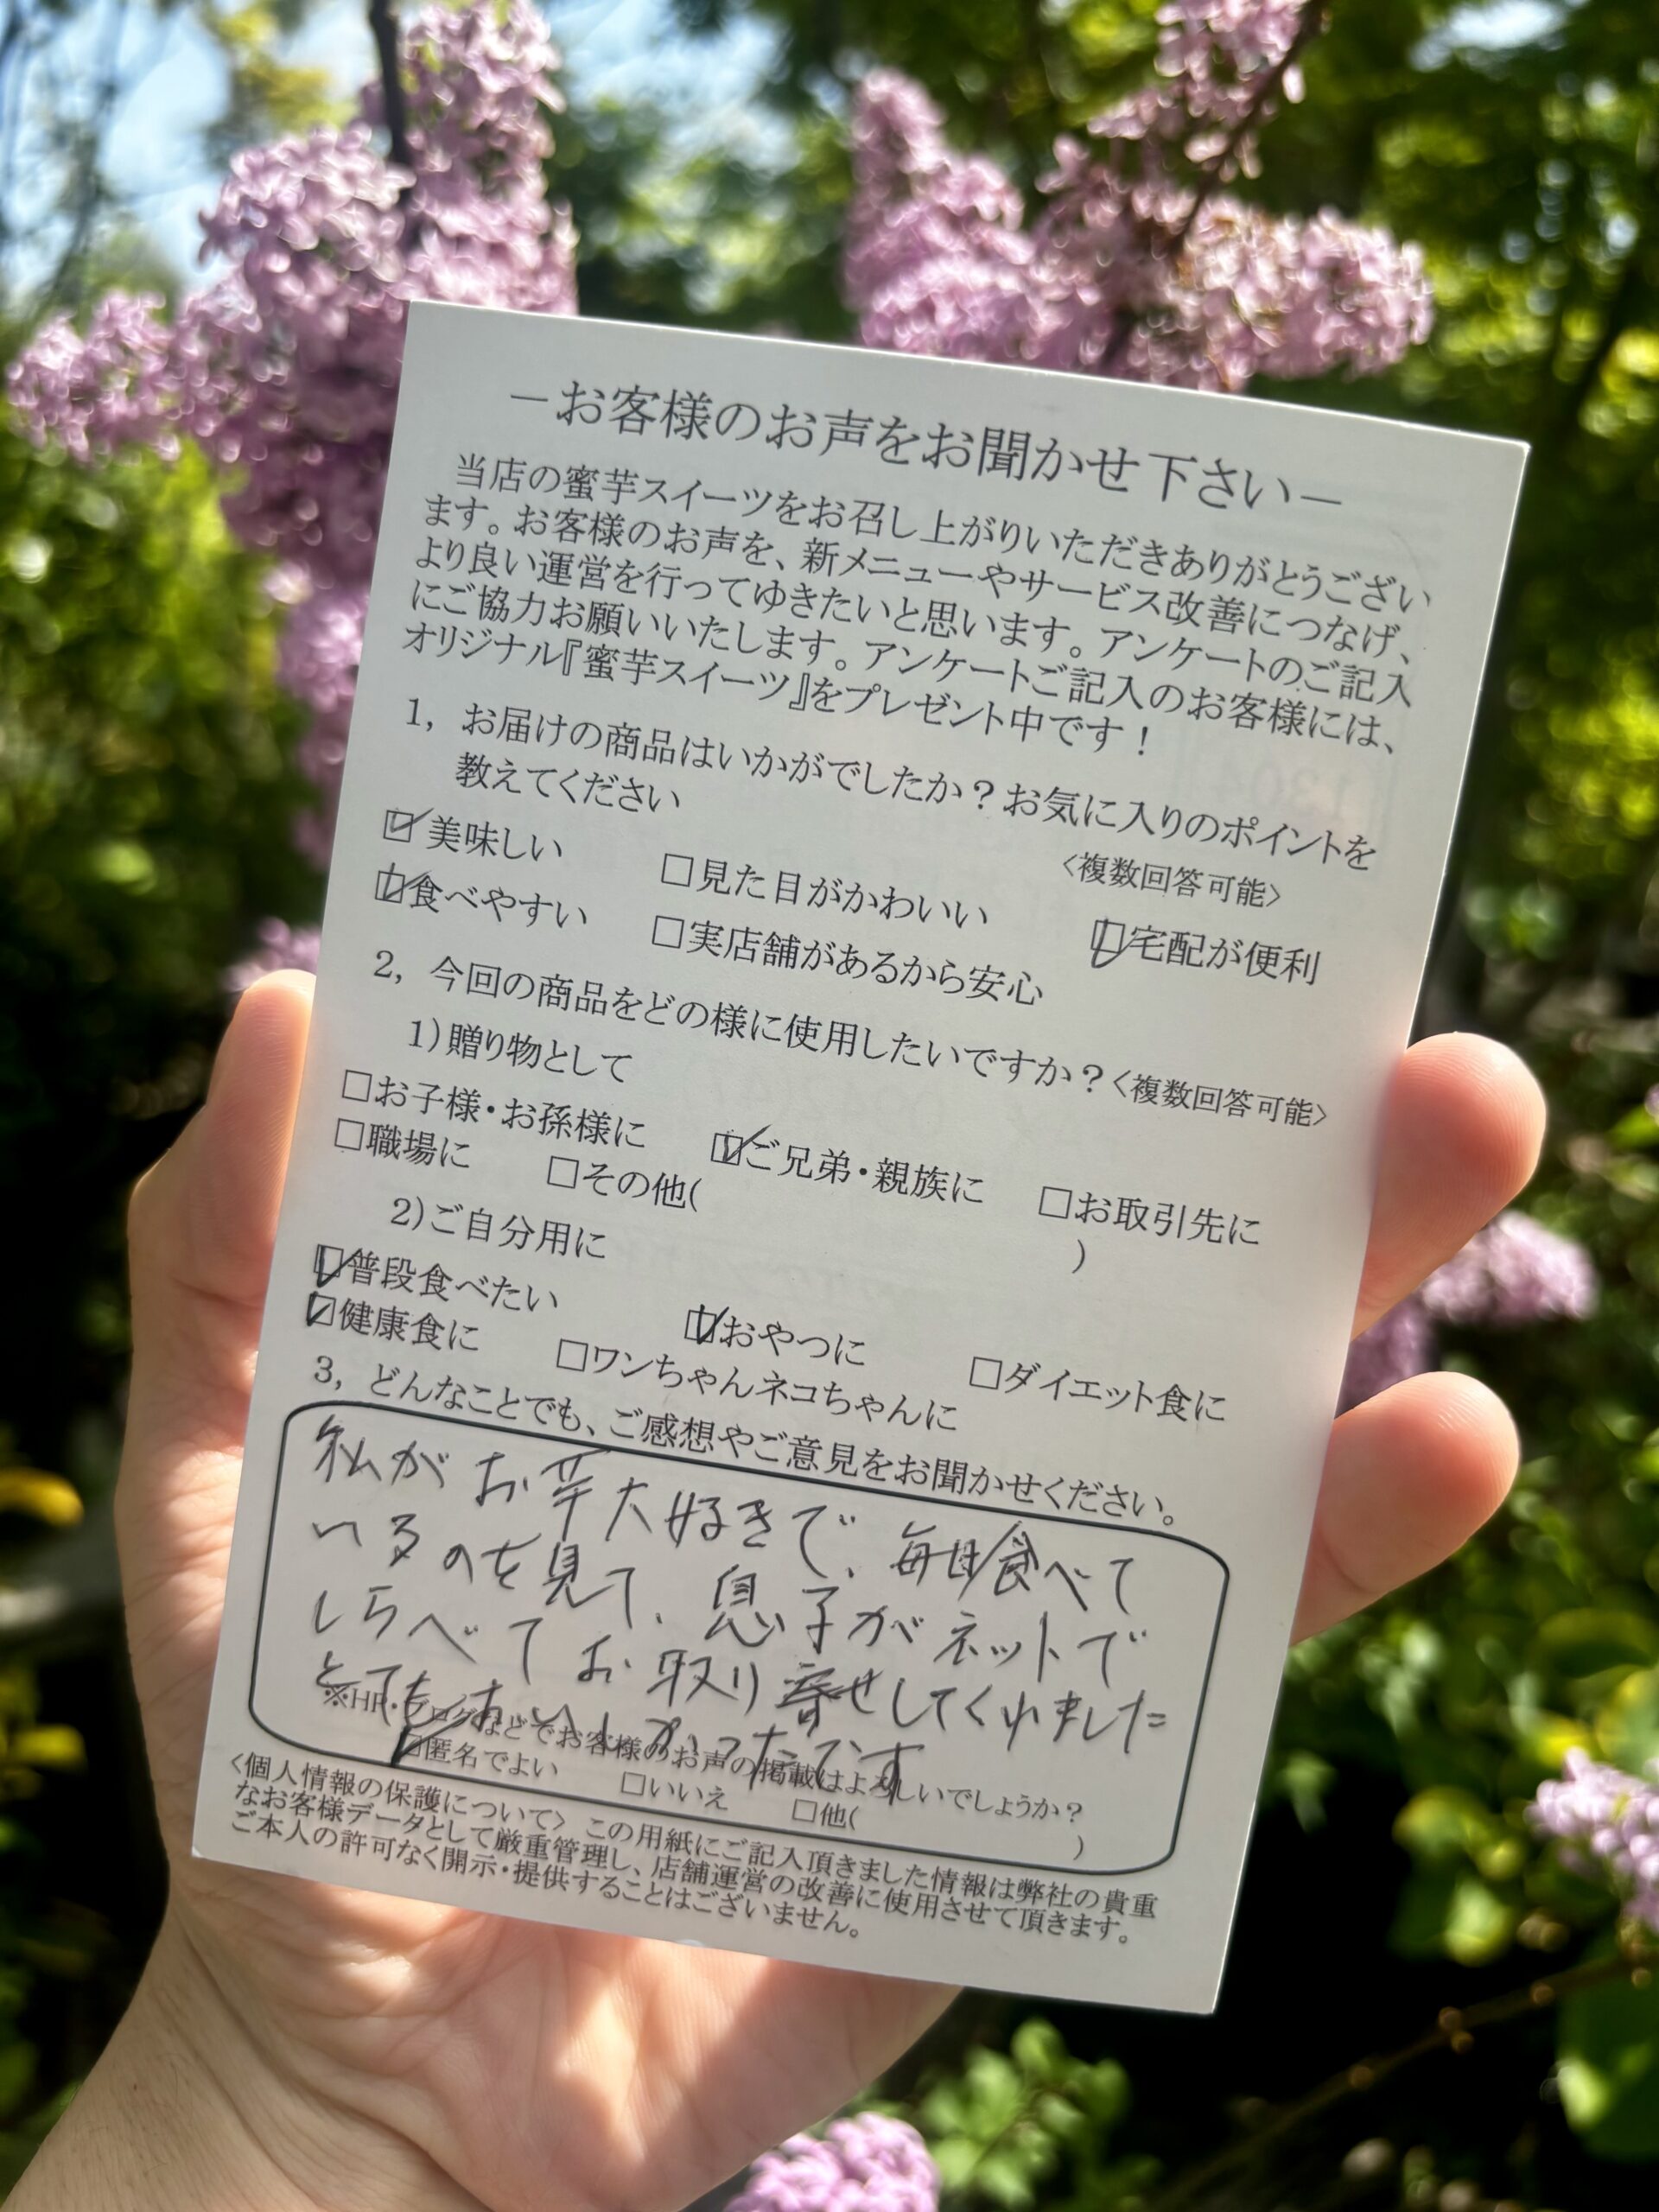 －お客様のお声をお聞かせ下さい－
当店の蜜芋スイーツをお召し上がりいただきありがとうござい
ます。お客様のお声を、新メニューやサービス改善につなげ、
より良い運営を行ってゆきたいと思います。アンケートのご記入
にご協力お願いいたします。アンケートご記入のお客様には、
オリジナル『蜜芋スイーツ』をプレゼント中です！
1, お届けの商品はいかがでしたか？お気に入りのポイントを
教えてください
〈複数回答可能〉
☑美味しい □見た目がかわいい ☑宅配が便利
☑食べやすい □実店舗があるから安心
2, 今回の商品をどの様に使用したいですか？〈複数回答可能〉
1)贈り物として
□お子様・お孫様に ☑ご兄弟・親族に □お取引先に
□職場に □その他( )
2)ご自分用に
☑普段食べたい ☑おやつに □ダイエット食に
☑健康食に □ワンちゃんネコちゃんに
3, どんなことでも、ご感想やご意見をお聞かせください。
私がお芋大好きで、毎日食べて
いるのを見て、息子がネットで
しらべてお取り寄せしてくれました
とてもおいしかったです
※HP・ブログなどでお客様のお声の掲載はよろしいでしょうか？
☑匿名でよい □いいえ □他( )
〈個人情報の保護について〉 この用紙にご記入頂きました情報は弊社の貴重
なお客様データとして厳重管理し、店舗運営の改善に使用させて頂きます。
ご本人の許可なく開示・提供することはございません。